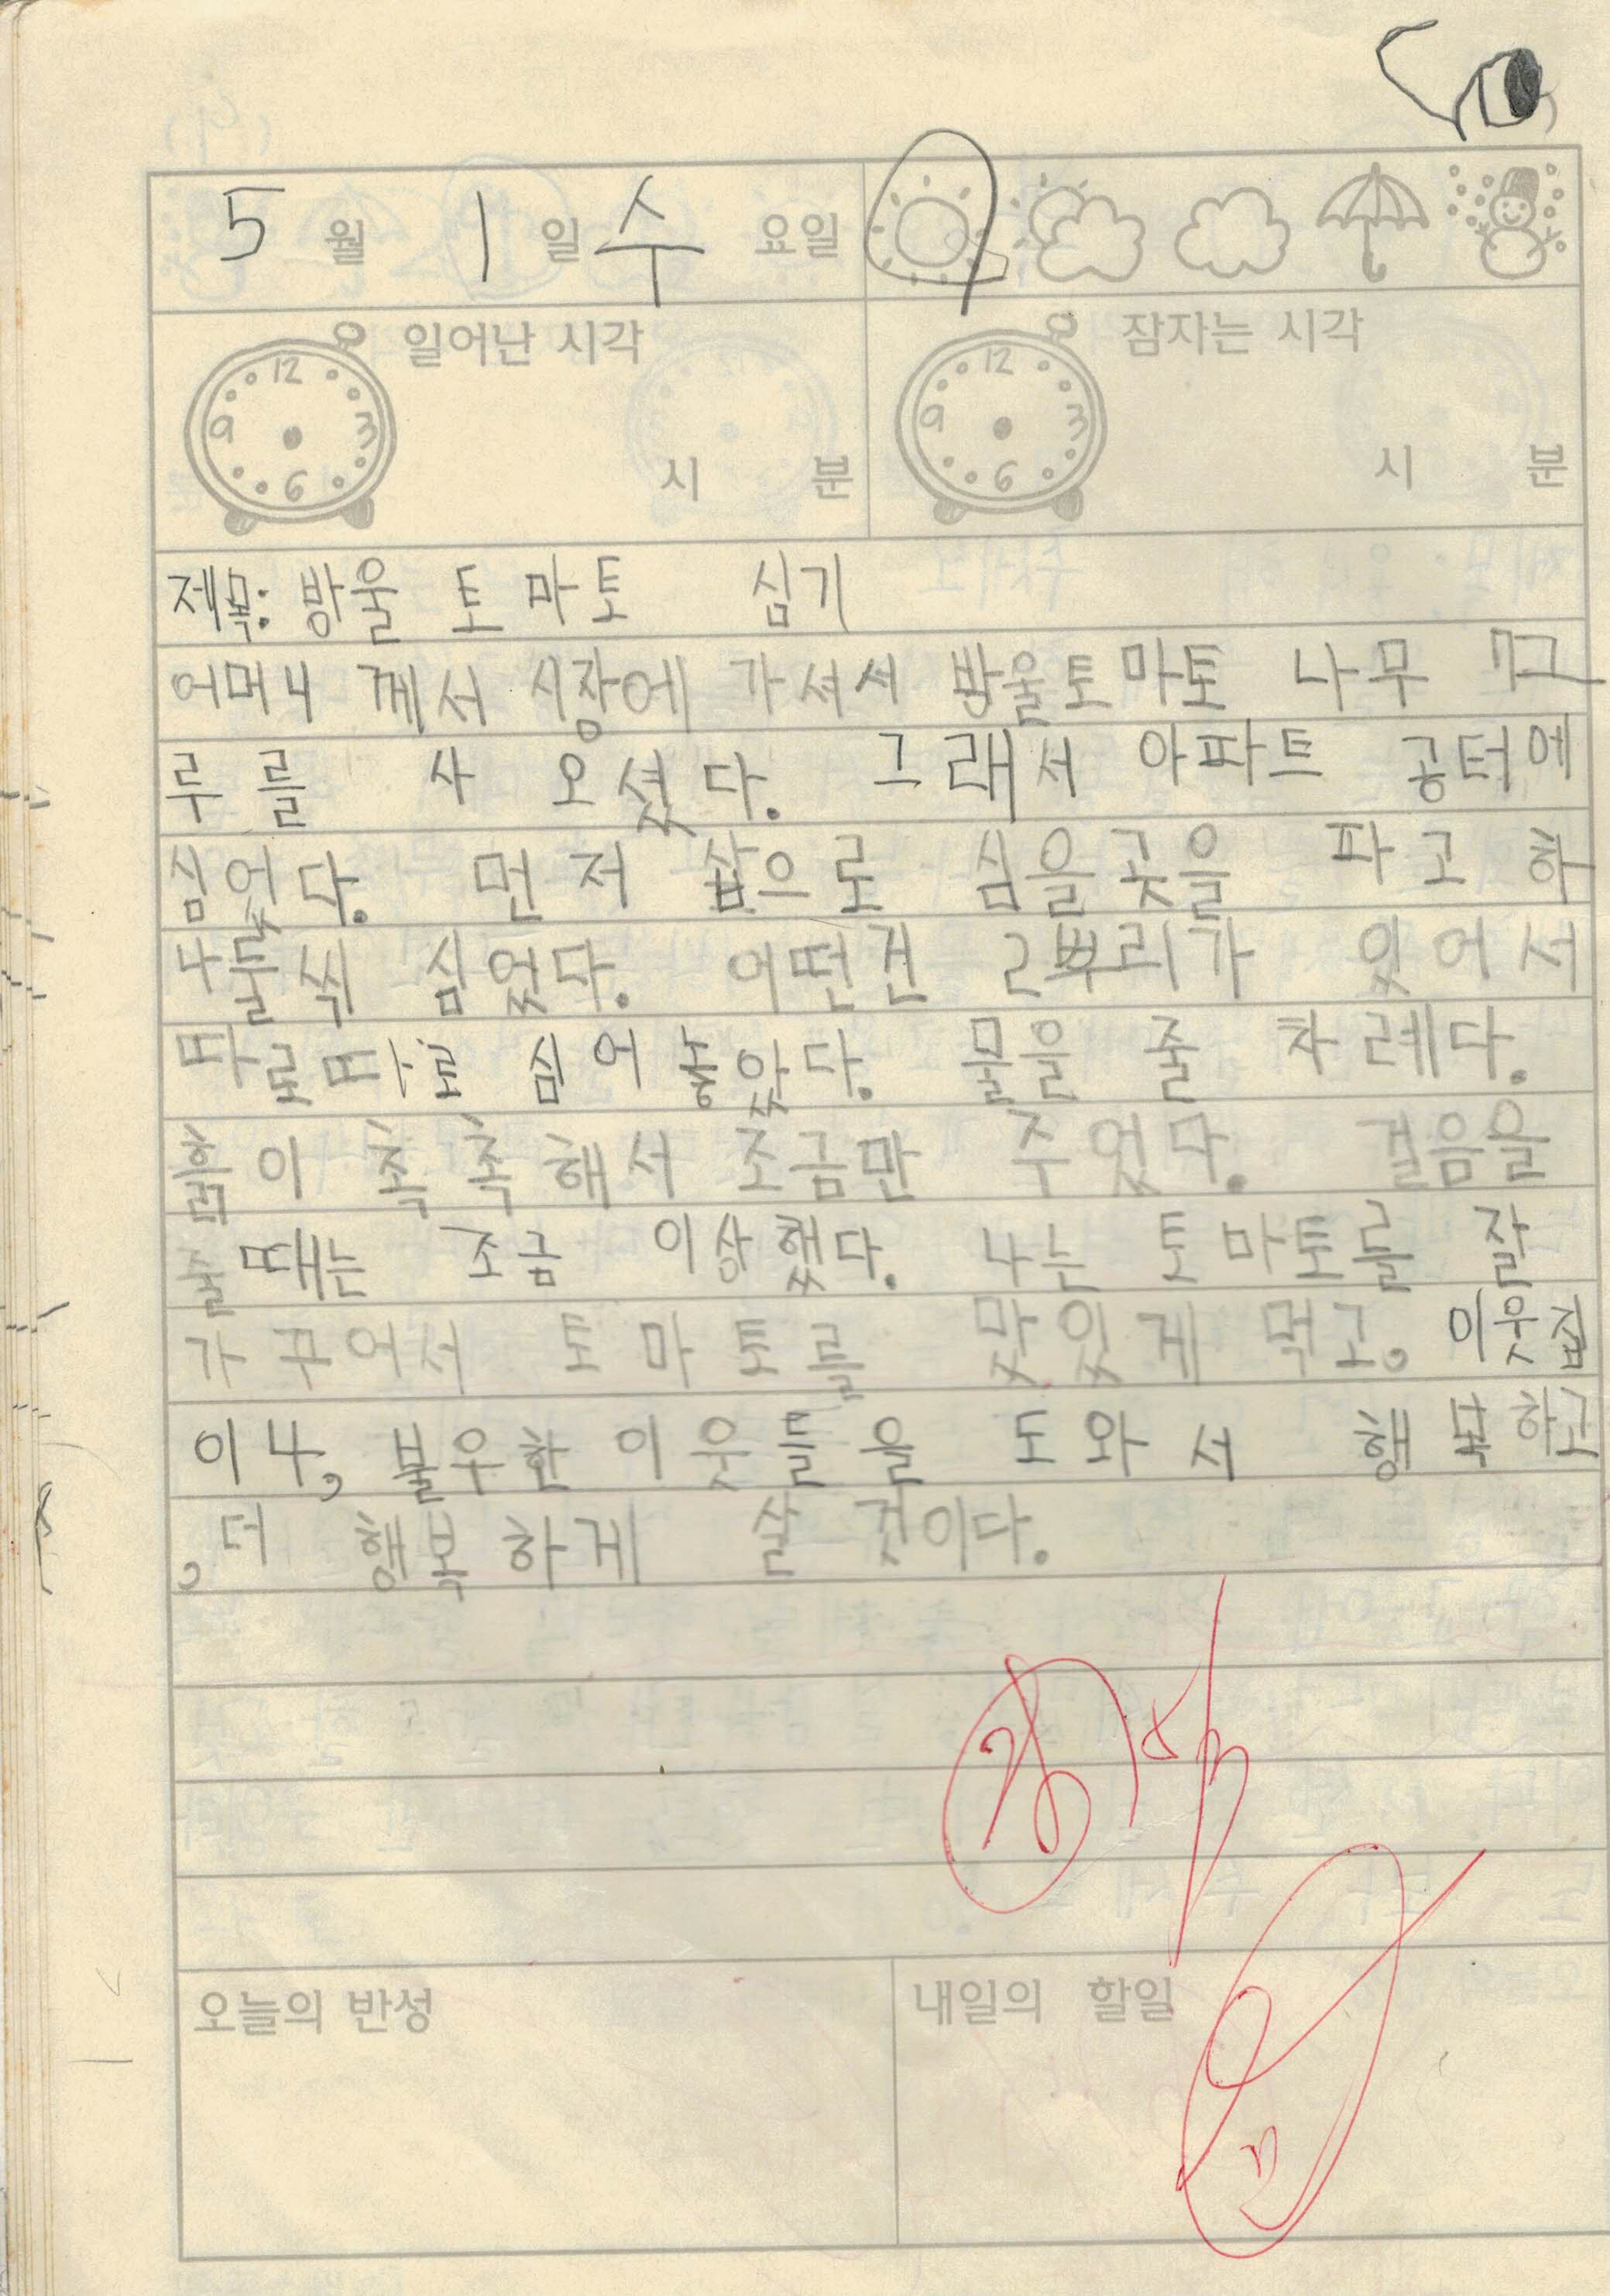 5 월 1 일 수 요일
일어난 시각 잠자는 시각
12 3 6 9 12 3 6 9
시 분 시 분
제목: 방울 토마토 심기
어머니 께서 시장에 가셔서 방울토마토 나무 7그
루를 사 오셨다. 그래서 아파트 공터에
심었다. 먼저 삽으로 심을곳을 파고
심었다. 어떤건 뿌리가 있어서
심어 놓았다. 물을 줄 차례다.
이 촉촉해서 조금만 주었다. 걸음을
줄 때는 조금 이상했다. 나는 토마토를 잘
가꾸어서 토마토를 맛있게 먹고, 이웃집
이나, 불우한 이웃들을 도와서 행복하고
, 더 행복하게 살 것이다.
오늘의 반성 내일의 할일